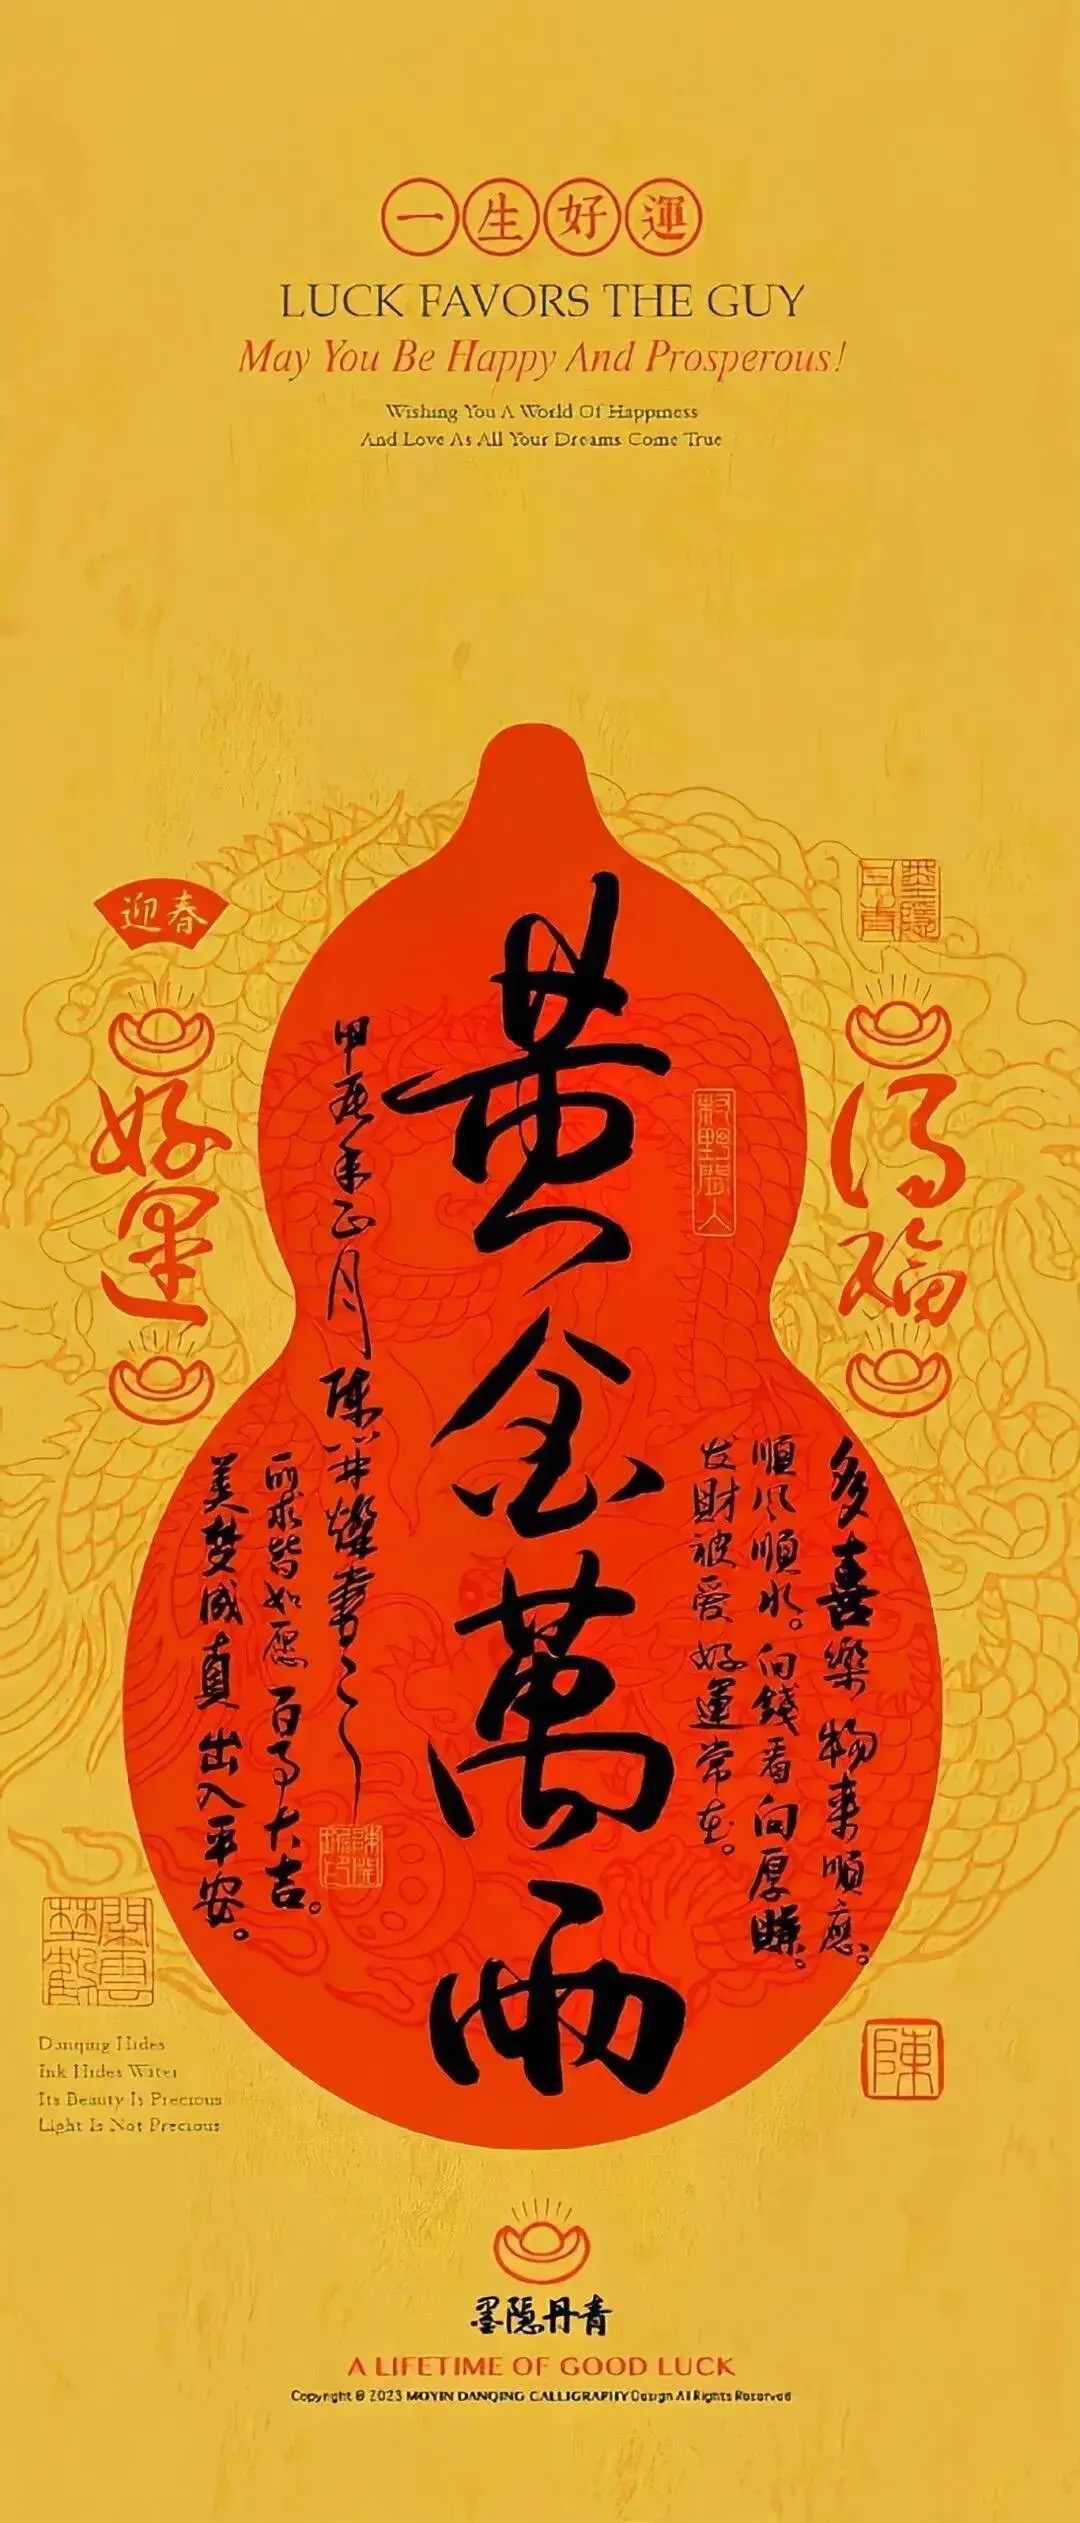 一生好運
LUCK FAVORS THE GUY
May You Be Happy And Prosperous!
Wishing You A World Of Happiness
And Love As All Your Dreams Come True
迎春
好運
得福
黄金萬兩
多喜樂 物来順應。
順风順水。向錢看向厚賺。
发財被爱 好運常在。
甲辰年正月陳開燦書之
所求皆如愿 百事大吉。
美梦成真 出入平安。
村野閒人
墨隱丹青
陳
Danqing Hides
Ink Hides Water
Its Beauty Is Precious
Light Is Not Precious
墨隐丹青
A LIFETIME OF GOOD LUCK
Copyright © 2023 MOYIN DANQING CALLIGRAPHY Design All Rights Reserved